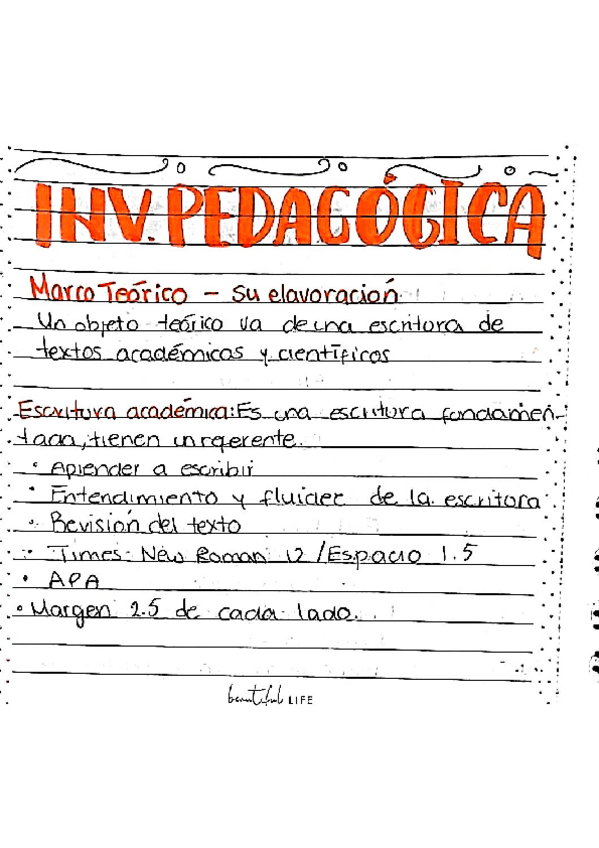 INV. PEDAGÓGICA
Marco Teórico - su elavoración
Un objeto teórico va de una escritora de
textos académicos y científicos
Escritura académica: Es una escritura fundamen-
taan, tienen un referente.
• Aprender a escribir
• Entendimiento y fluidez de la escritora
• Revisión del texto
• Times New Roman 12 / Espacio 1.5
• APA
• Margen 2.5 de cada lado.
beautiful LIFE